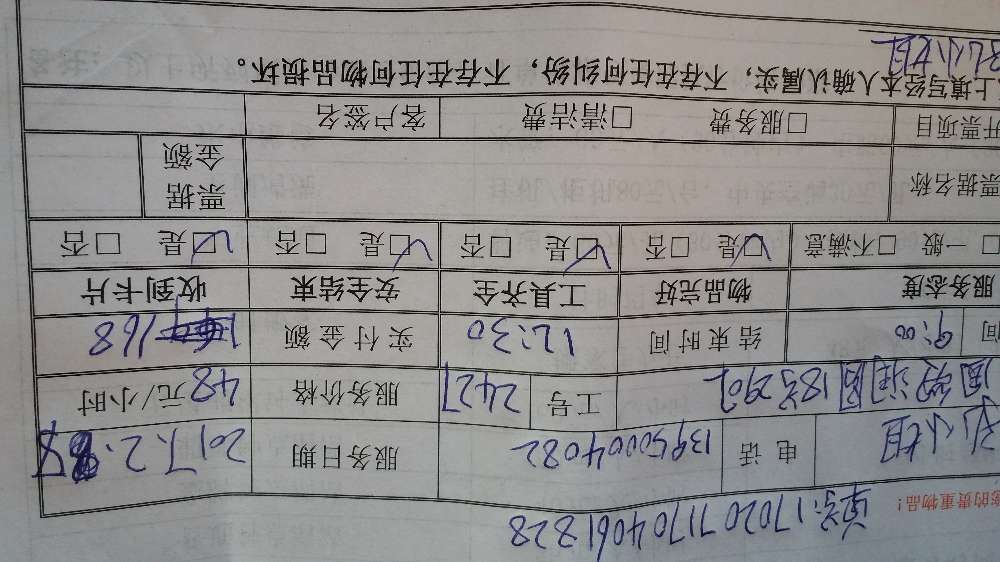 单号:17020711704061828
您的贵重物品!
小姐 电话 13950004082 服务日期 2017.2.
18号 工号 2427 服务价格 48元/小时
间 9:00 结束时间 12:30 实付金额 168
服务态度 物品完好 工具齐全 安全结束 收到卡片
□一般 □不满意 ☑是 □否 ☑是 □否 ☑是 □否 ☑是 □否
票据名称 票据金额
开票项目 □服务费 □清洁费 客户签名
上填写经本人确认属实,不存在任何纠纷,不存在任何物品损坏。
小姐